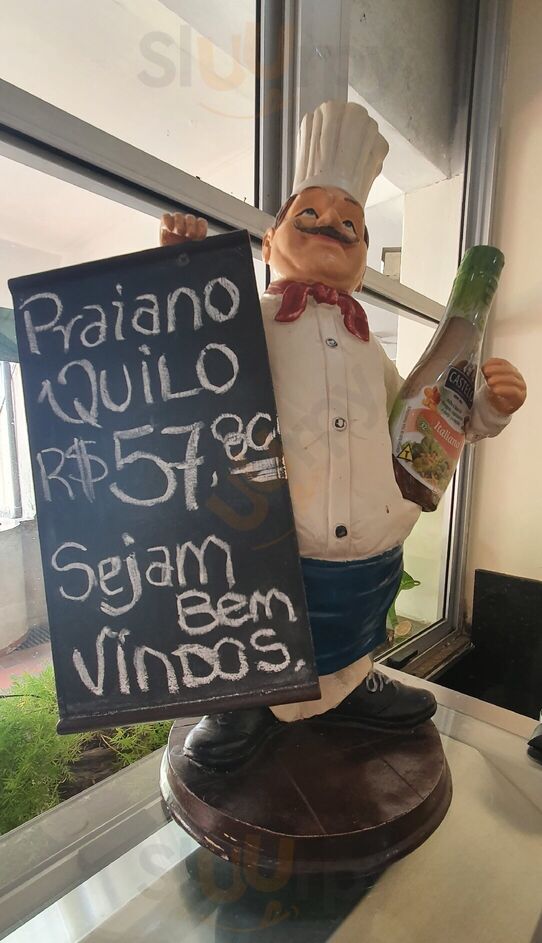 Praiano
QUILO
R$57,80
Sejam
Bem
VinDOS.
CASTELO
Italiano
Slurpy